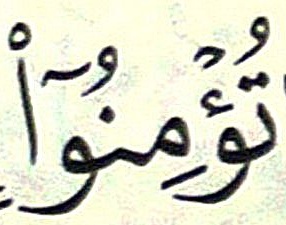 تُؤۡمِنُوٓاْ